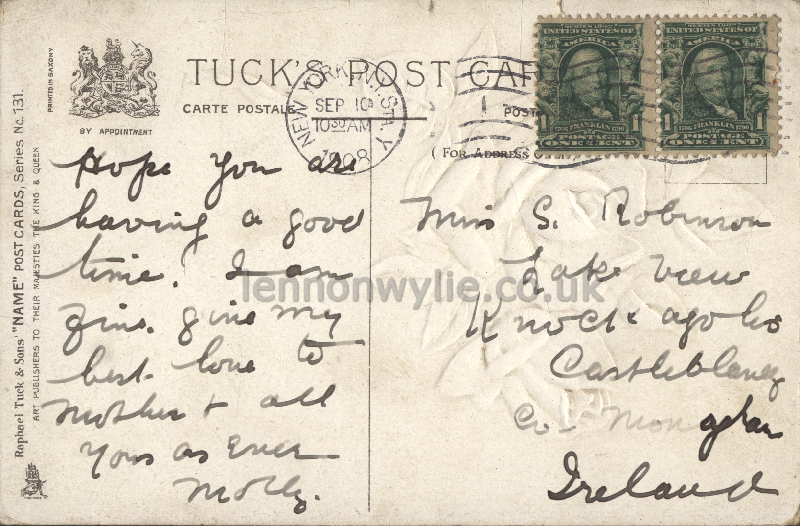 TUCK'S POST CAR
CARTE POSTALE
BY APPOINTMENT
PRINTED IN SAXONY
NEW YORK, N.Y. STA. Y
SEP 10
10 30 AM
1908
POST
( FOR ADDRESS O
SERIES 1902
UNITED STATES OF
AMERICA
1706 FRANKLIN 1790
1 POSTAGE 1
ONE CENT
SERIES 1902
UNITED STATES OF
AMERICA
1706 FRANKLIN 1790
1 POSTAGE 1
ONE CENT
Raphael Tuck & Sons' "NAME" POST CARDS, Series No. 131.
ART PUBLISHERS TO THEIR MAJESTIES THE KING & QUEEN
Hope you are
having a good
time. I am
fine. give my
best love to
Mother & all
Yours as Ever
Molly.
Miss S. Robinson
Lake View
Castleblaney
Co. Monaghan
Ireland
lennonwylie.co.uk